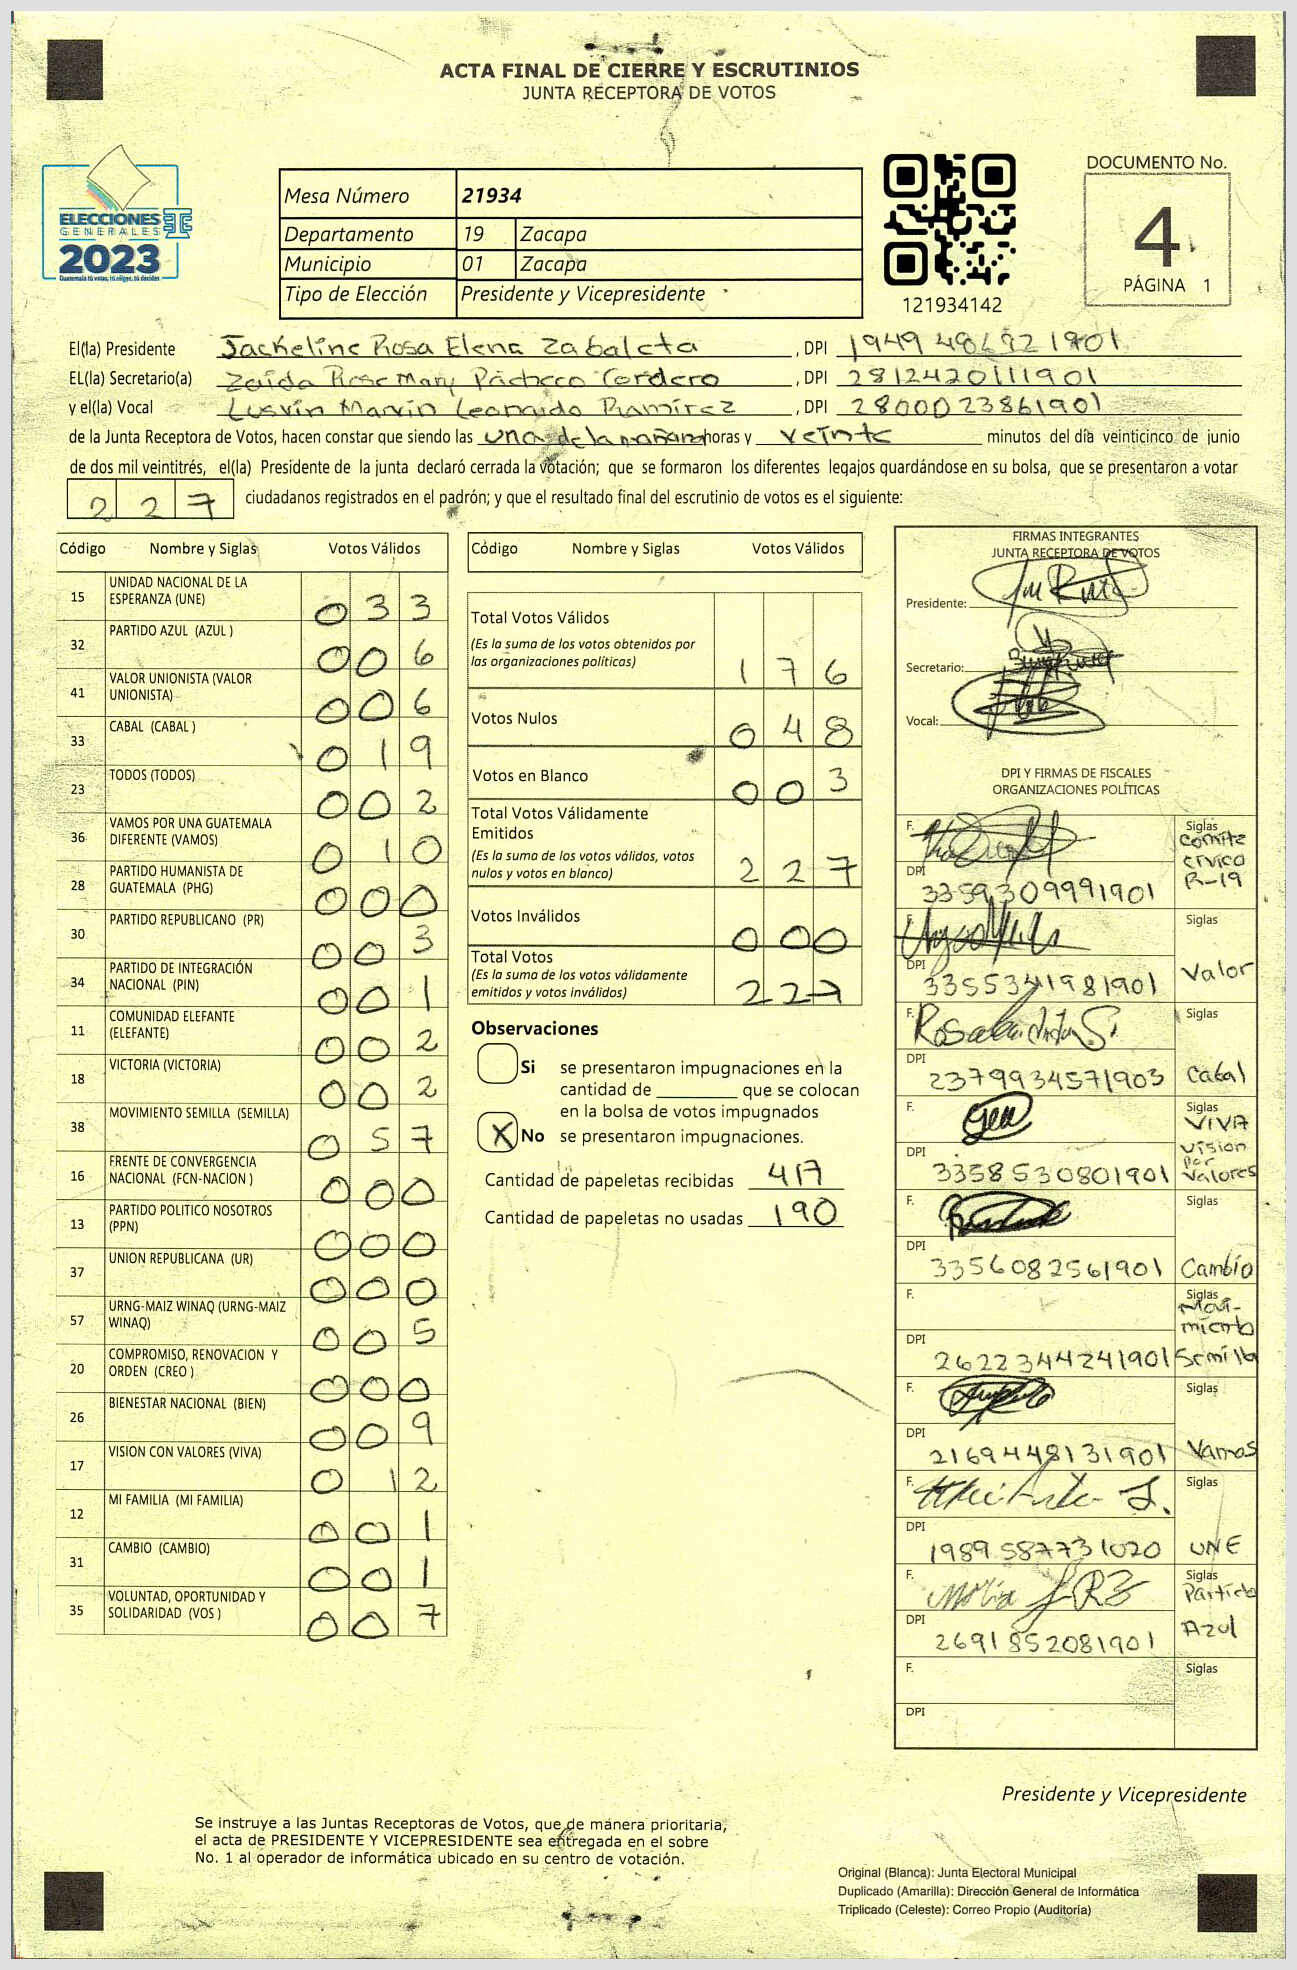 ACTA FINAL DE CIERRE Y ESCRUTINIOS
JUNTA RECEPTORA DE VOTOS
ELECCIONES
GENERALES
2023
Guatemala tú votas, tú eliges, tú decides
Mesa Número 21934
Departamento 19 Zacapa
Municipio 01 Zacapa
Tipo de Elección Presidente y Vicepresidente
121934142
DOCUMENTO No.
4
PÁGINA 1
El(la) Presidente Jackeline Rosa Elena Zabaleta , DPI 1949 486921901
EL(la) Secretario(a) Zaida Rose Mary Pacheco Cordero , DPI 2812420111901
y el(la) Vocal Lusvin Marvin Leonardo Ramírez , DPI 2800023861901
de la Junta Receptora de Votos, hacen constar que siendo las una de la mañana horas y veinte minutos del día veinticinco de junio
de dos mil veintitrés, el(la) Presidente de la junta declaró cerrada la votación; que se formaron los diferentes legajos quardándose en su bolsa, que se presentaron a votar
227 ciudadanos registrados en el padrón; y que el resultado final del escrutinio de votos es el siguiente:
Código Nombre y Siglas Votos Válidos
15 UNIDAD NACIONAL DE LA
ESPERANZA (UNE) 033
32 PARTIDO AZUL (AZUL ) 006
41 VALOR UNIONISTA (VALOR
UNIONISTA) 006
33 CABAL (CABAL ) 019
23 TODOS (TODOS) 002
36 VAMOS POR UNA GUATEMALA
DIFERENTE (VAMOS) 010
28 PARTIDO HUMANISTA DE
GUATEMALA (PHG) 000
30 PARTIDO REPUBLICANO (PR) 003
34 PARTIDO DE INTEGRACIÓN
NACIONAL (PIN) 001
11 COMUNIDAD ELEFANTE
(ELEFANTE) 002
18 VICTORIA (VICTORIA) 002
38 MOVIMIENTO SEMILLA (SEMILLA) 057
16 FRENTE DE CONVERGENCIA
NACIONAL (FCN-NACION ) 000
13 PARTIDO POLITICO NOSOTROS
(PPN) 000
37 UNION REPUBLICANA (UR) 000
57 URNG-MAIZ WINAQ (URNG-MAIZ
WINAQ) 005
20 COMPROMISO, RENOVACION Y
ORDEN (CREO ) 000
26 BIENESTAR NACIONAL (BIEN) 009
17 VISION CON VALORES (VIVA) 012
12 MI FAMILIA (MI FAMILIA) 001
31 CAMBIO (CAMBIO) 001
35 VOLUNTAD, OPORTUNIDAD Y
SOLIDARIDAD (VOS ) 007
Código Nombre y Siglas Votos Válidos
Total Votos Válidos
(Es la suma de los votos obtenidos por
las organizaciones políticas) 176
Votos Nulos 048
Votos en Blanco 003
Total Votos Válidamente
Emitidos
(Es la suma de los votos válidos, votos
nulos y votos en blanco) 227
Votos Inválidos 000
Total Votos
(Es la suma de los votos válidamente
emitidos y votos inválidos) 227
Observaciones
Si se presentaron impugnaciones en la
cantidad de ________ que se colocan
en la bolsa de votos impugnados
X No se presentaron impugnaciones.
Cantidad de papeletas recibidas 417
Cantidad de papeletas no usadas 190
FIRMAS INTEGRANTES
JUNTA RECEPTORA DE VOTOS
Presidente:
Secretario:
Vocal:
DPI Y FIRMAS DE FISCALES
ORGANIZACIONES POLÍTICAS
F. Siglas
Comite
civico
R-19
DPI 3359309991901
F. Siglas
DPI 3355341981901 Valor
F. Siglas
DPI 2379934571903 Cabal
F. Siglas
VIVA
DPI 3358530801901 Vision
por
Valores
F. Siglas
DPI 3356082561901 Cambio
F. Siglas
Movi-
miento
DPI 2622344241901 Semilla
F. Siglas
DPI 2169448131901 Vamos
F. Siglas
DPI 1989587731020 UNE
F. Siglas
Partido
DPI 2691852081901 Azul
F. Siglas
DPI
Presidente y Vicepresidente
Se instruye a las Juntas Receptoras de Votos, que de mánera prioritaria,
el acta de PRESIDENTE Y VICEPRESIDENTE sea entregada en el sobre
No. 1 al operador de informática ubicado en su centro de votación.
Original (Blanca): Junta Electoral Municipal
Duplicado (Amarilla): Dirección General de Informática
Triplicado (Celeste): Correo Propio (Auditoría)